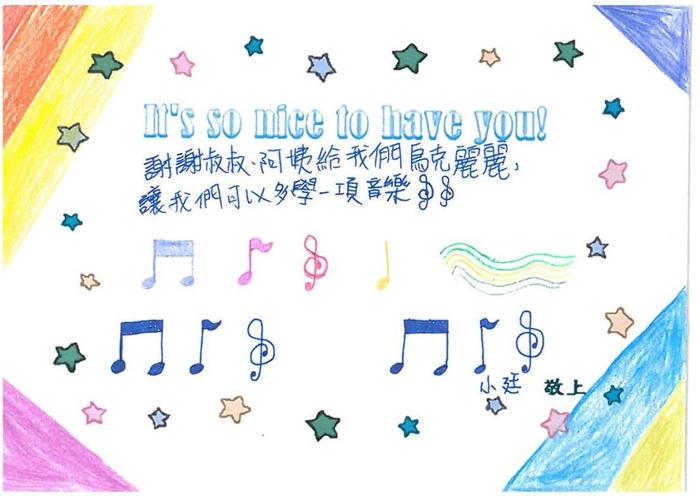 It's so nice to have you!
謝謝叔叔、阿姨給我們烏克麗麗，
讓我們可以多學一項音樂
小廷 敬上